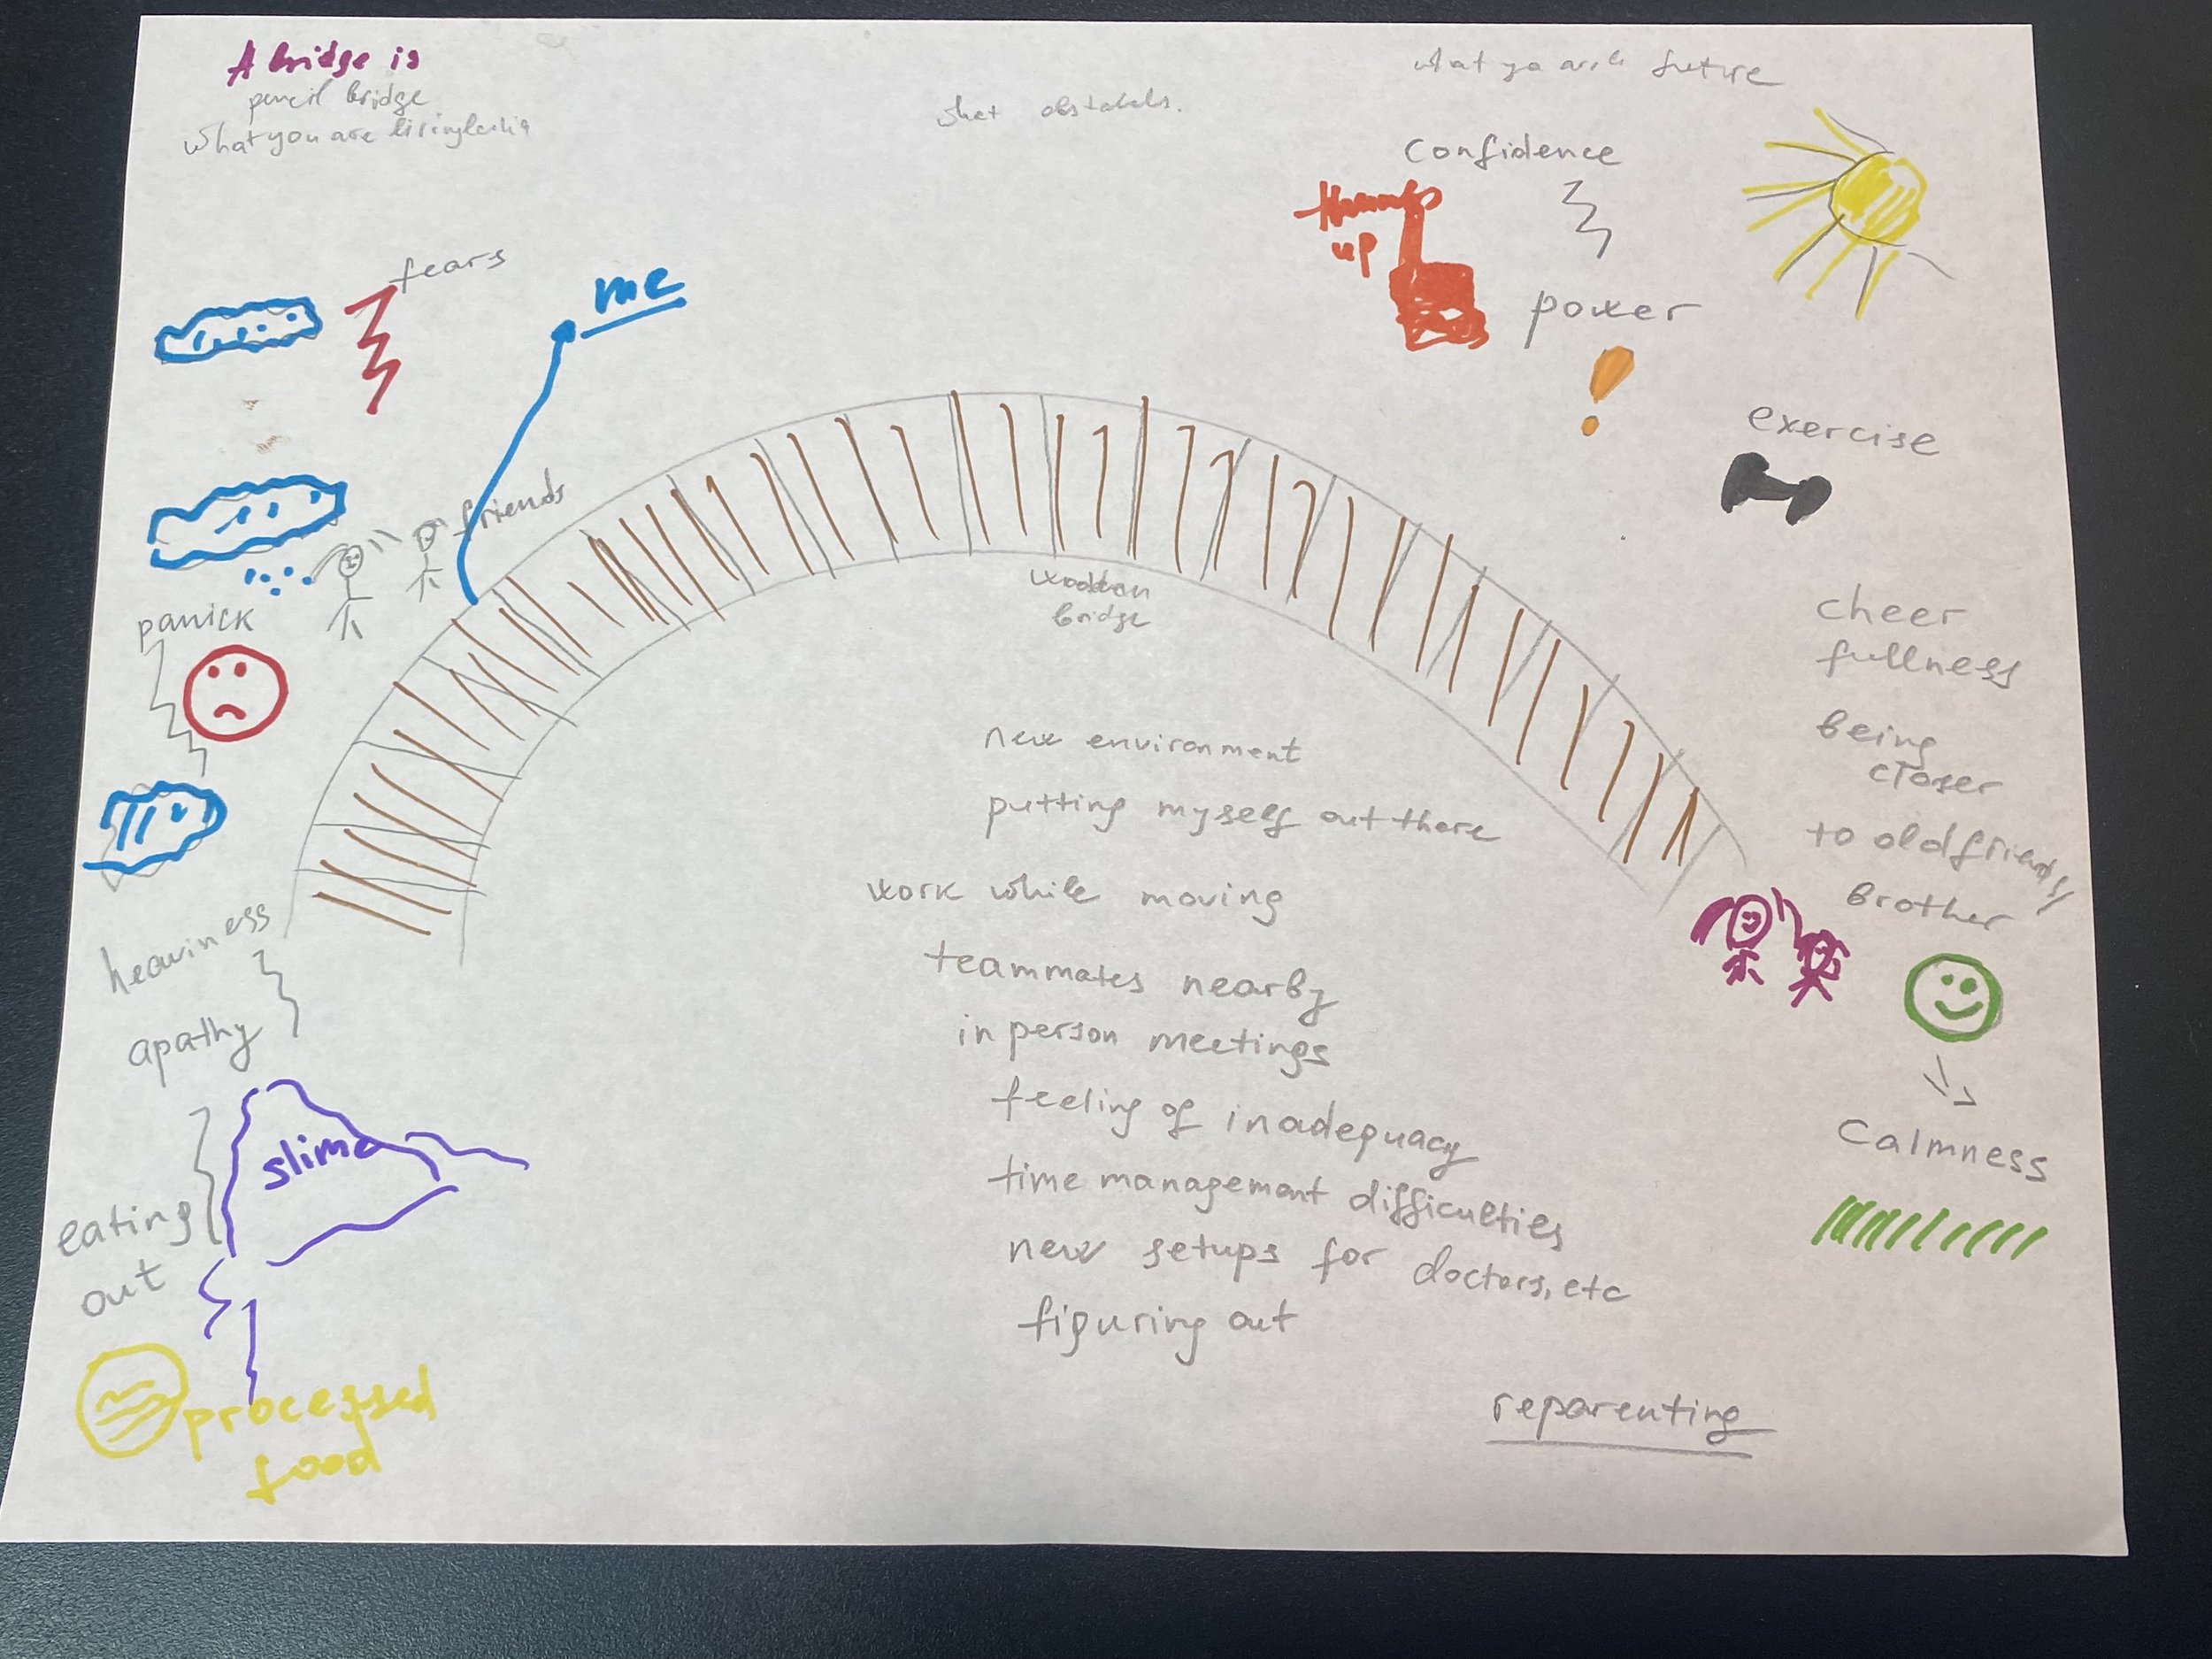 A bridge is
pencil bridge
what you are
what obstakels.
what yo are future
Confidence
thumbs
up
power
fears
me
exercise
friends
panick
wooden
bridge
cheer
fullness
being
closer
to old friends/
brother
new environment
putting myself out there
work while moving
teammates nearby
in person meetings
feeling of inadequacy
time management difficulties
new setups for doctors, etc
figuring out
heaviness
apathy
slime
eating
out
processed
food
Calmness
reparenting